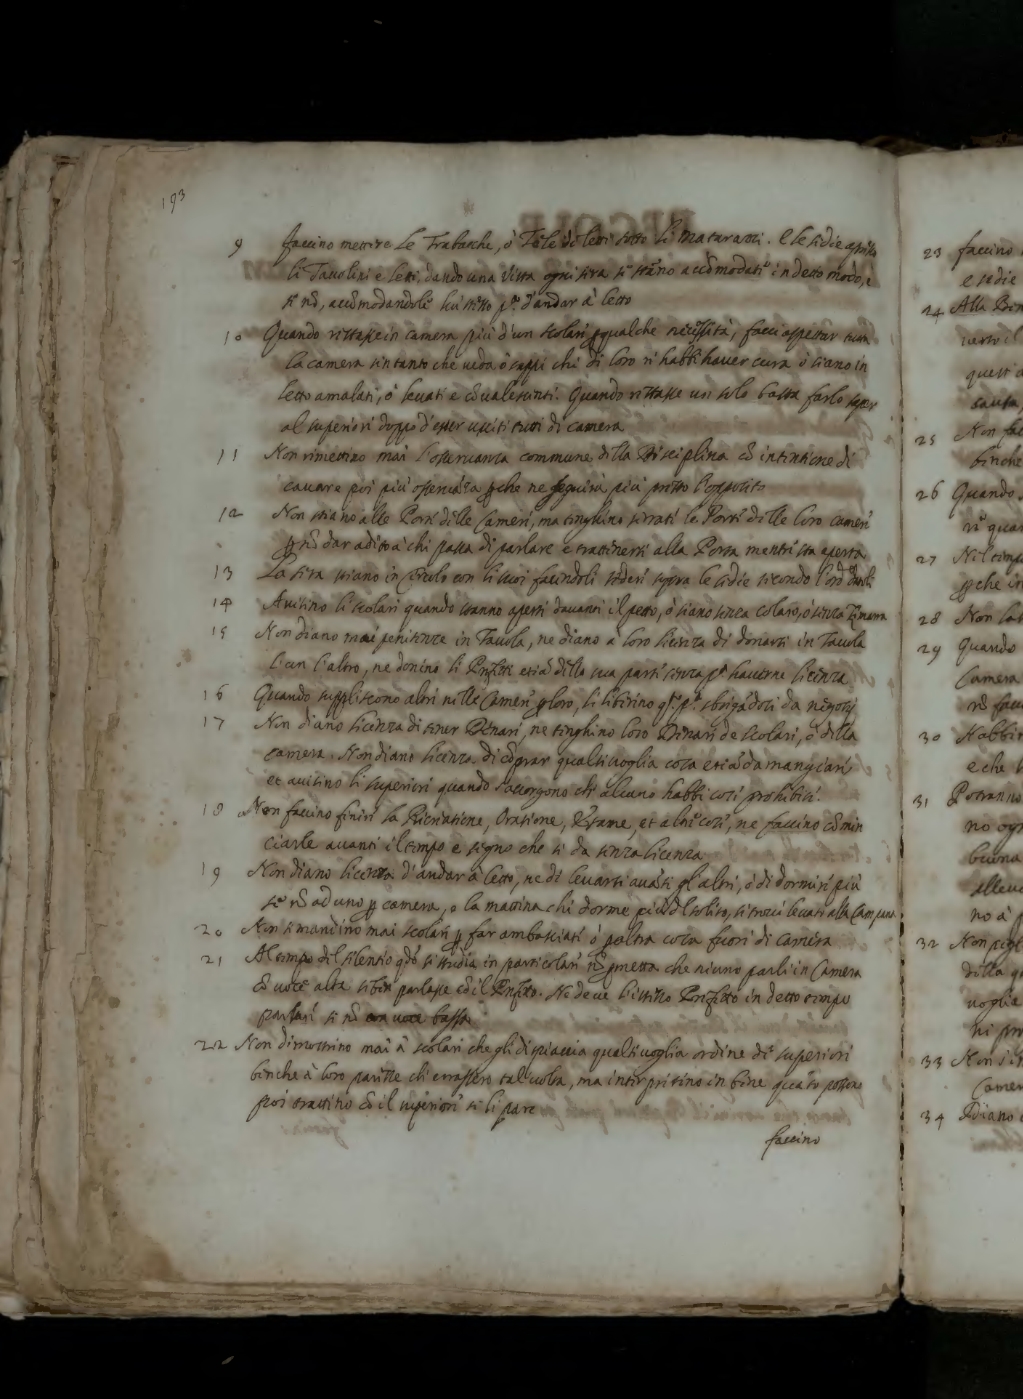 193
9 Faccino mettere le Trabache, ò Tele de letti sotto li Matarazzi. E le sedie apresso
li Tavolini e letti, dando una vista ogni sera se stano accõmodati in detto modo, e
se nõ, accõmodandole sù detto p.ª d'andar à letto
10 Quando restasse in camera più d'un scolari ꝑ qualche necessità, facci aspettar
la camera sin tanto che veda ò sappi chi di loro ne habbi haver cura ò siano in
letto amalati, ò levati e cõvalescenti. Quando restasse un solo basta farlo saper
al superiori doppo d'esser usciti tutti di camera
11 Non rimettino mai l'osservanza commune della Disciplina cõ intentione di
cavare poi più osservãza ꝑche ne seguira più presto l'opposito
12 Non stiano alle Porte delle Camere, ma tenghino serrate le Porte delle loro camere
ꝑ nõ dar adito à chi passa di parlare e trattenersi alla Porta mentre sta aperta
13 La sera siano in Circulo con li suoi facendoli sedere sopra le sedie secondo l'ord
14 Avisino li scolari quando stanno aperti davanti il petto, ò siano senza colaro, ò senza Zimarra
15 Non diano mai penitenze in Tavola, ne diano a loro licenza di donarsi in Tavola
l'un l'altro, ne donino li Prefetti etiã della sua parte senza p.ª haverne licenza
16 Quando suppliscono altri nelle Camere ꝑ loro, li liberino q.to p.ª sbrigãdosi da negotij
17 Non diano licenza di tener Denari, ne tenghino loro Denari de scolari, ò della
camera. Non diano licenza di cõprar qualsivoglia cosa etiã da mangiare
et avisino li superiori quando s'accorgono che alcuno habbi cose prohibite.
18 Non faccino finire la Ricreatione, Oratione, Esame, et altre cose, ne faccino cõmin
ciarle avanti il tempo e segno che si da senza licenza
19 Non diano licenza d'andar à letto, ne di levarsi avãti gl'altri, ò di dormire più
se nõ ad uno ꝑ camera, e la mattina chi dorme più del solito, si trovi levato alla Campana
20 Non si mandino mai scolari ꝑ far ambasciate ò ꝑ altra cosa fuori di camera
21 Al tempo del silentio qdõ si studia in particolari nõ ꝑmetta che niuno parli in Camera
cõ voce alta se bẽ parlasse cõ il Prefetto. Ne deve l'istesso Prefetto in detto tempo
parlare se nõ con voce bassa
22 Non dimostrino mai à scolari che gli dispiaccia qualsivoglia ordine de superiori
benche à loro paresse che errassero tal'volta, ma interpretino in bene quãto possono
poi trattino cõ il superiore se li pare
faccino
23 faccino
e sedie
24 Alla Ben
verso il
questi
causa
25 Non fac
benche
26 Quando
27 Nel temp
ꝑche in
28 Non las
29 Quando
Camera
nõ facc
30 Habbin
e che
31 Potranno
no og
buona
alleu
no à
32 Non pigl
della q
voglia
33 Non si
Camer
34 Diano